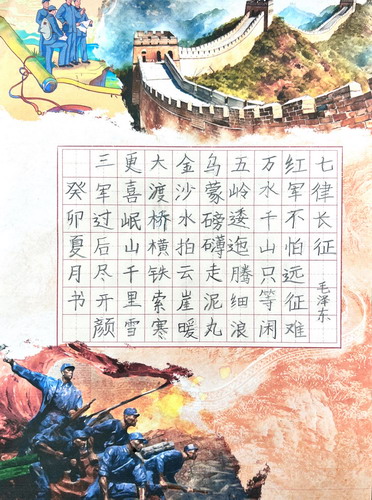 七律长征
毛泽东
红军不怕远征难
万水千山只等闲
五岭逶迤腾细浪
乌蒙磅礴走泥丸
金沙水拍云崖暖
大渡桥横铁索寒
更喜岷山千里雪
三军过后尽开颜
癸卯夏月书